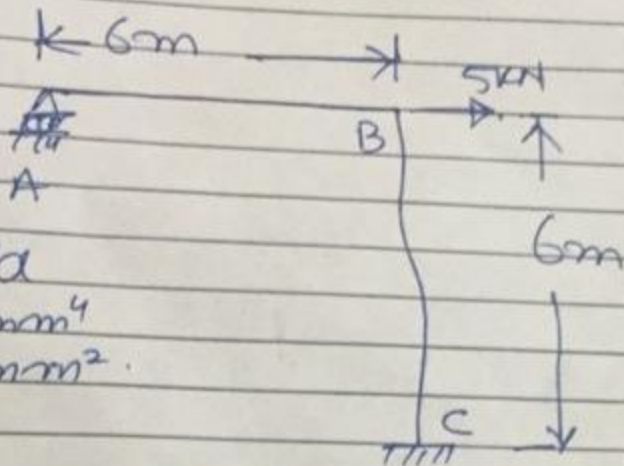 6m
5KN
B
A
6m
d
mm⁴
mm².
C